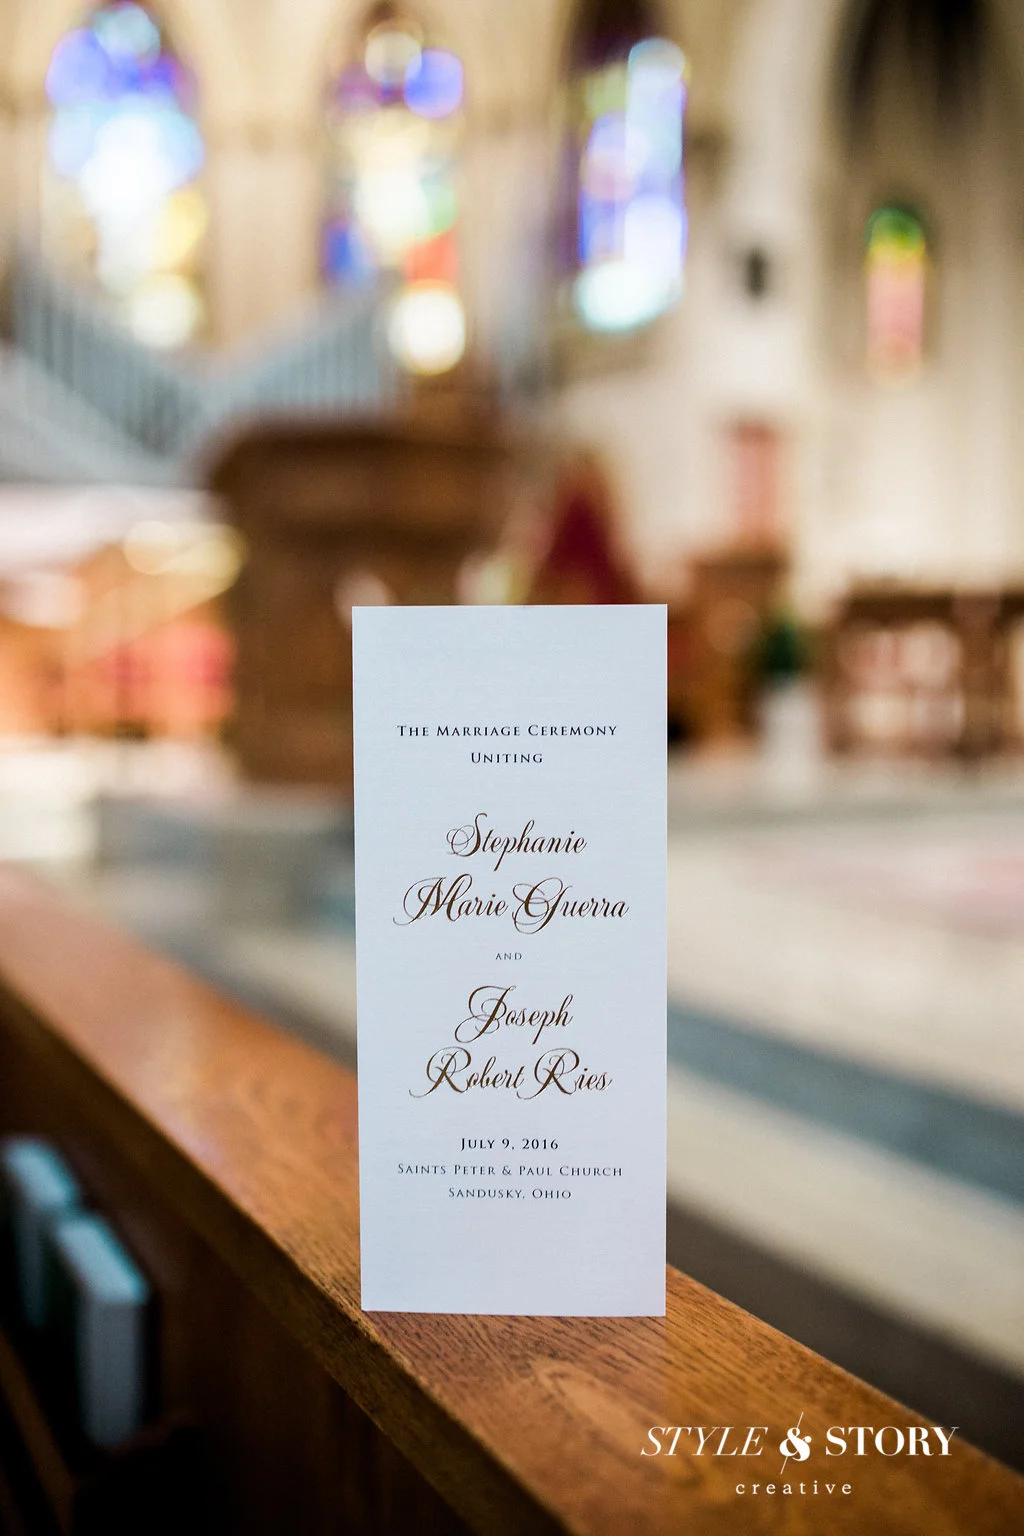 The Marriage Ceremony
Uniting
Stephanie
Marie Guerra
and
Joseph
Robert Ries
July 9, 2016
Saints Peter & Paul Church
Sandusky, Ohio
STYLE & STORY
creative